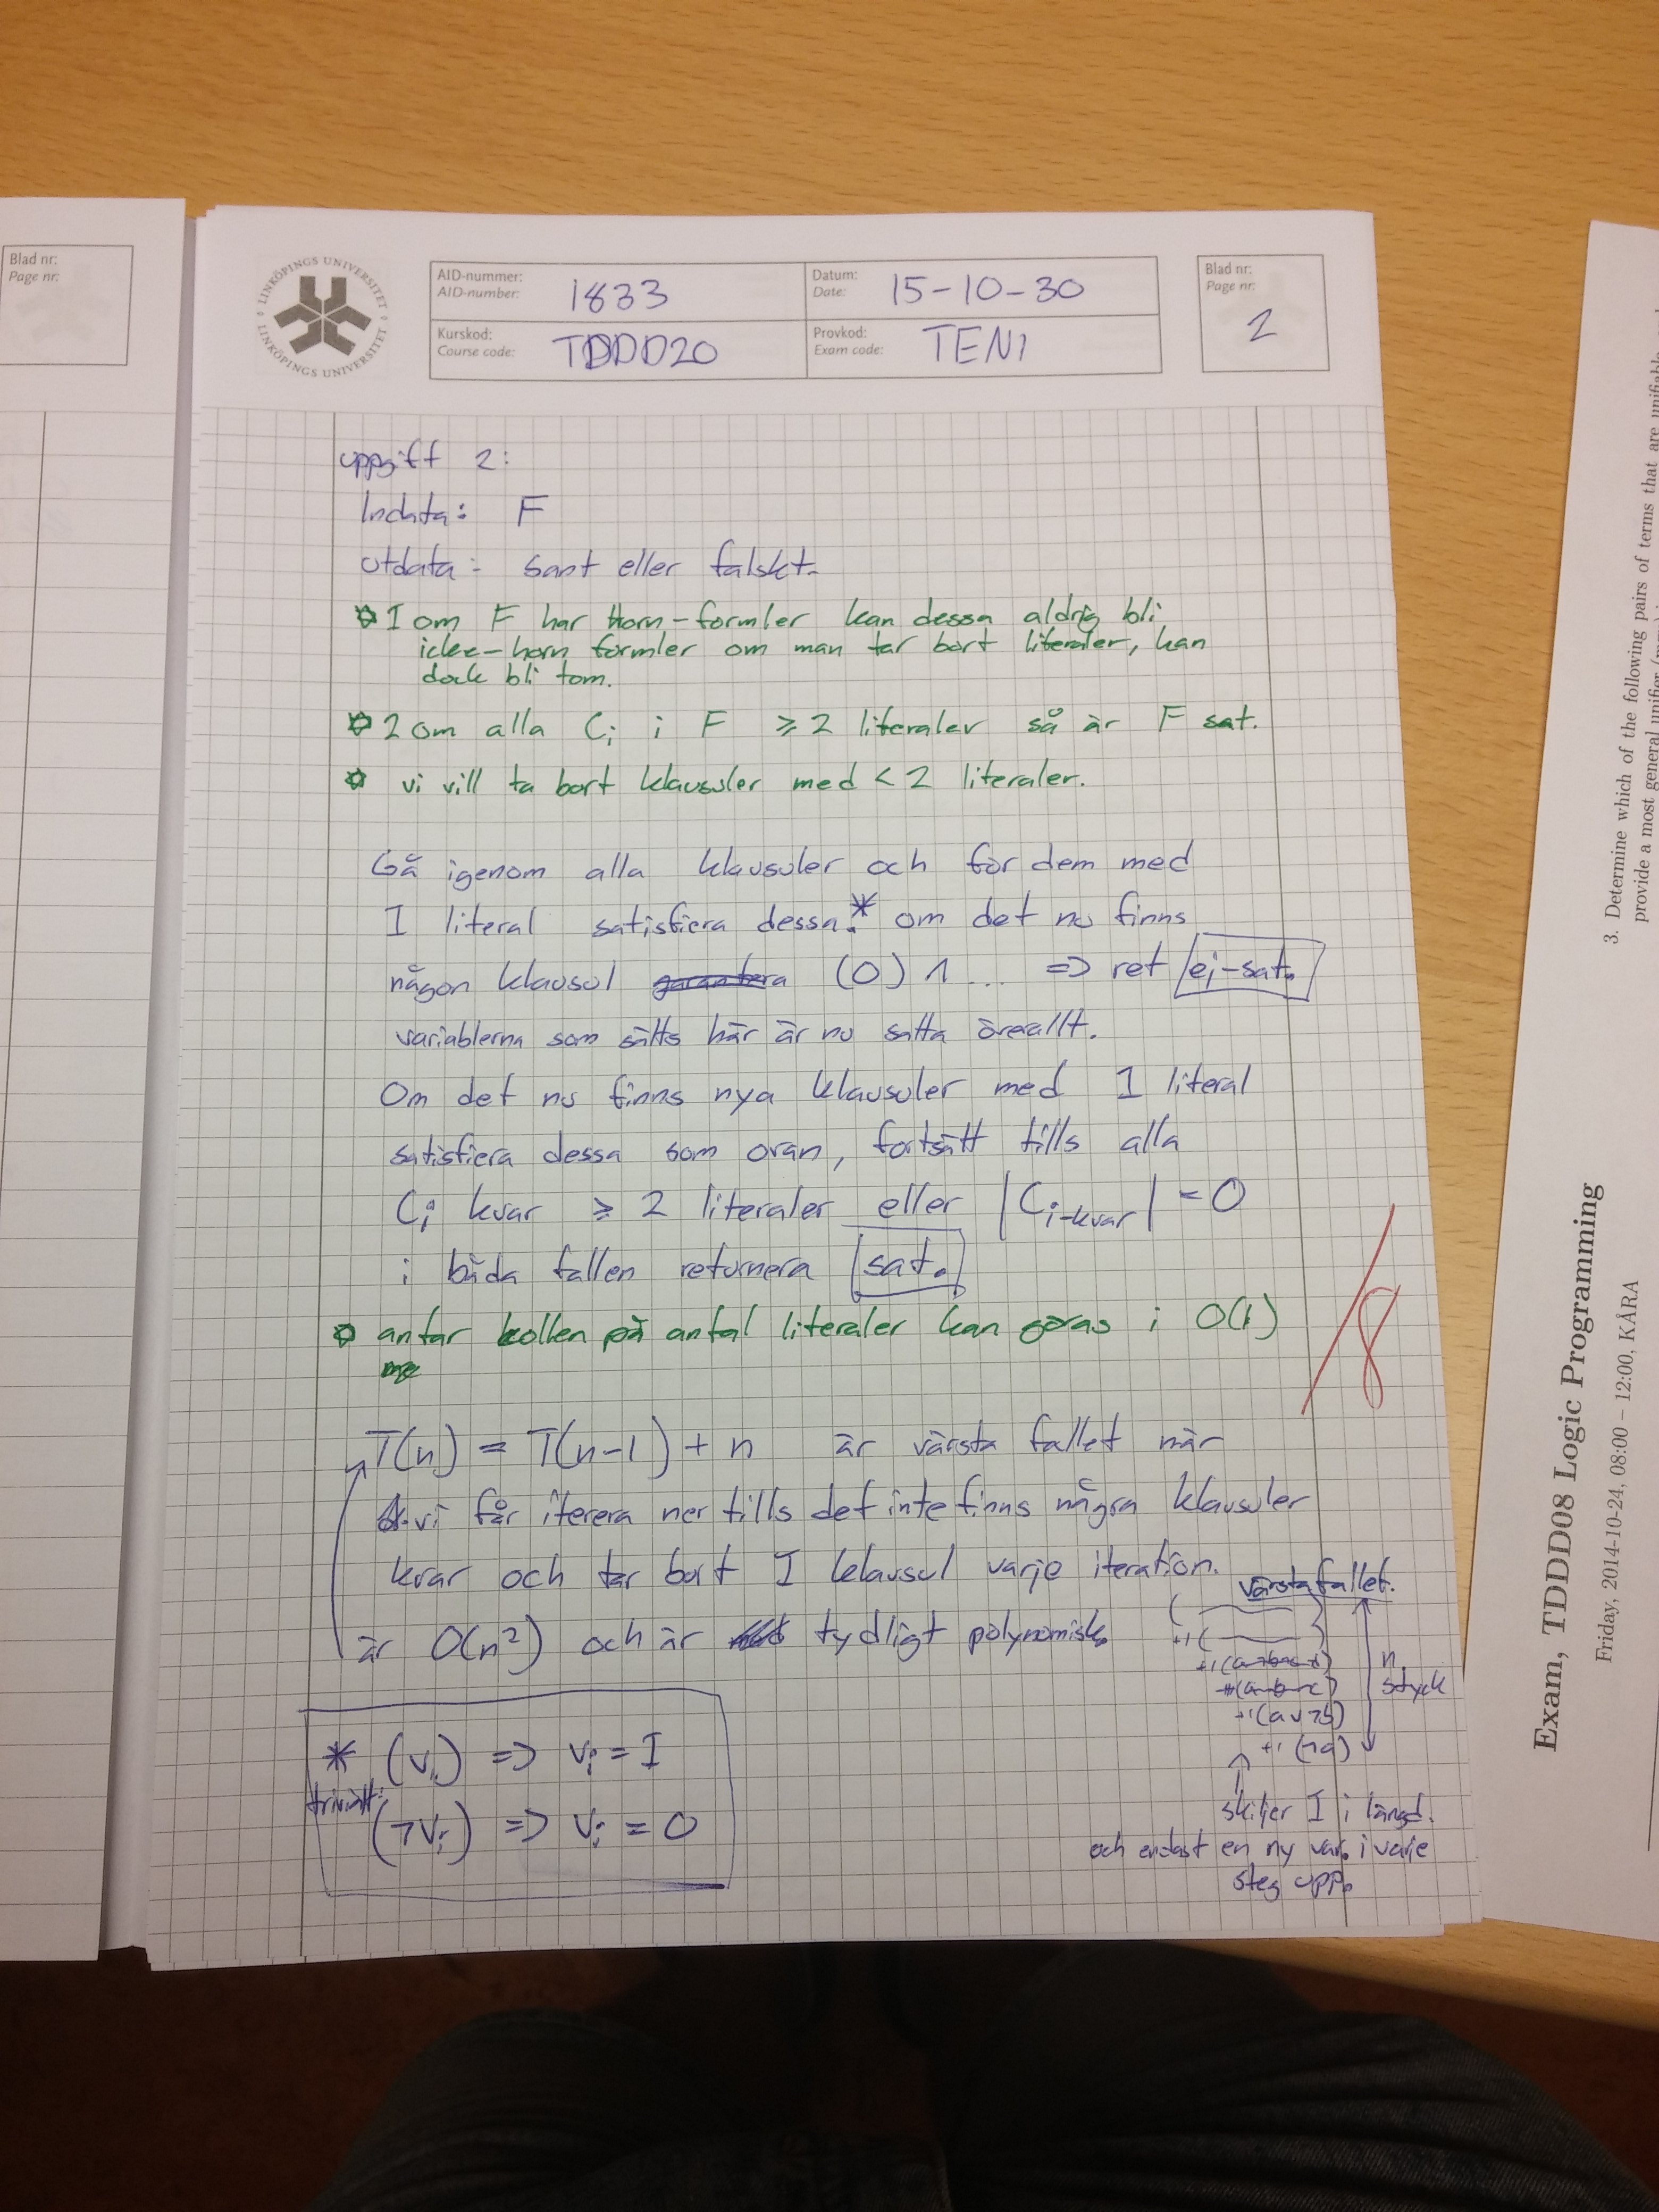 Blad nr:
Page nr:
LINKÖPINGS UNIVERSITET
LINKÖPINGS UNIVERSITET
AID-nummer:
AID-number:
1833
Datum:
Date:
15-10-30
Kurskod:
Course code:
TDDD20
Provkod:
Exam code:
TEN1
Blad nr:
Page nr:
2
uppgift 2:
Indata: F
utdata: sant eller falskt.
1 om F har Horn-formler kan dessa aldrig bli
icke-horn formler om man tar bort literaler, kan
dock bli tom.
2 om alla Ci i F ≥ 2 literaler så är F sat.
vi vill ta bort klausuler med < 2 literaler.
Gå igenom alla klausuler och för dem med
1 literal satisfiera dessa.* om det nu finns
någon klausul (0) ∧ ... => ret ej-sat.
variablerna som sätts här är nu satta överallt.
Om det nu finns nya klausuler med 1 literal
satisfiera dessa som ovan, fortsätt tills alla
Ci kvar ≥ 2 literaler eller |Ci-kvar| = 0
i båda fallen returnera sat.
antar kollen på antal literaler kan göras i O(1)
/8
T(n) = T(n-1) + n är värsta fallet när
vi får iterera ner tills det inte finns några klausuler
kvar och tar bort 1 klausul varje iteration.
är O(n²) och är tydligt polynomisk.
värsta fallet.
+1(
+1(a∨¬b)
+1(¬a)
n
styck
skiljer 1 i längd.
och endast en ny var. i varje
steg upp.
* (vi) => vi = 1
trivialt:
(¬vi) => vi = 0
3. Determine which of the following pairs of terms that are unifiable
provide a most general unifier
Exam, TDDD08 Logic Programming
Friday, 2014-10-24, 08:00 – 12:00, KÅRA